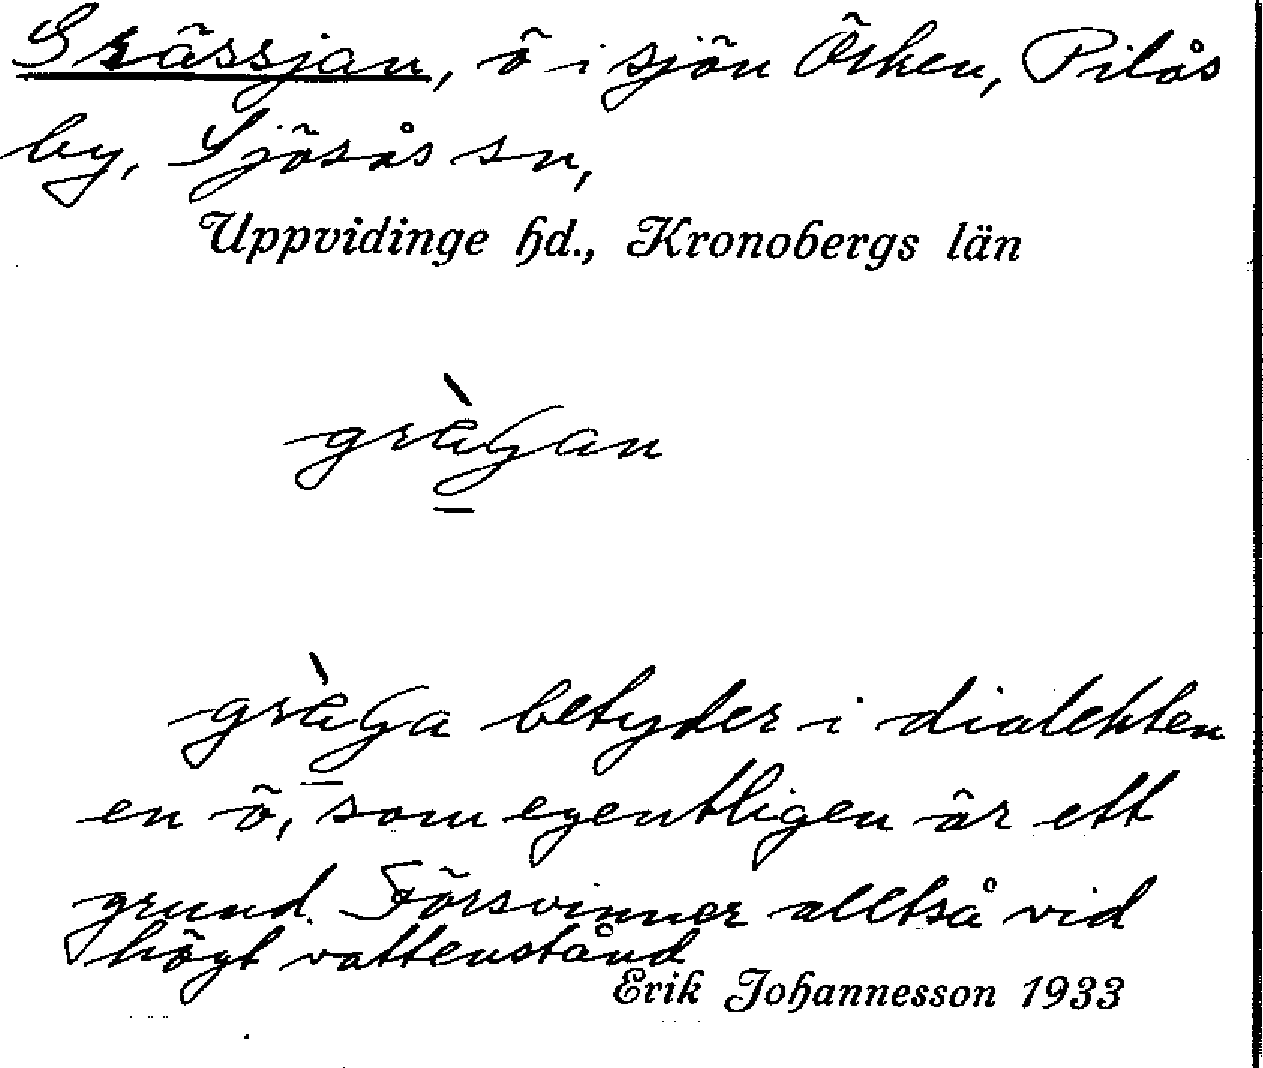 Grässjan, ö i sjön Örken, Pilås
by, Sjösås sn,
Uppvidinge hd., Kronobergs län
betyder i dialekten
en ö, som egentligen är ett
grund. Försvinner alltså vid
högt vattenstånd
Erik Johannesson 1933